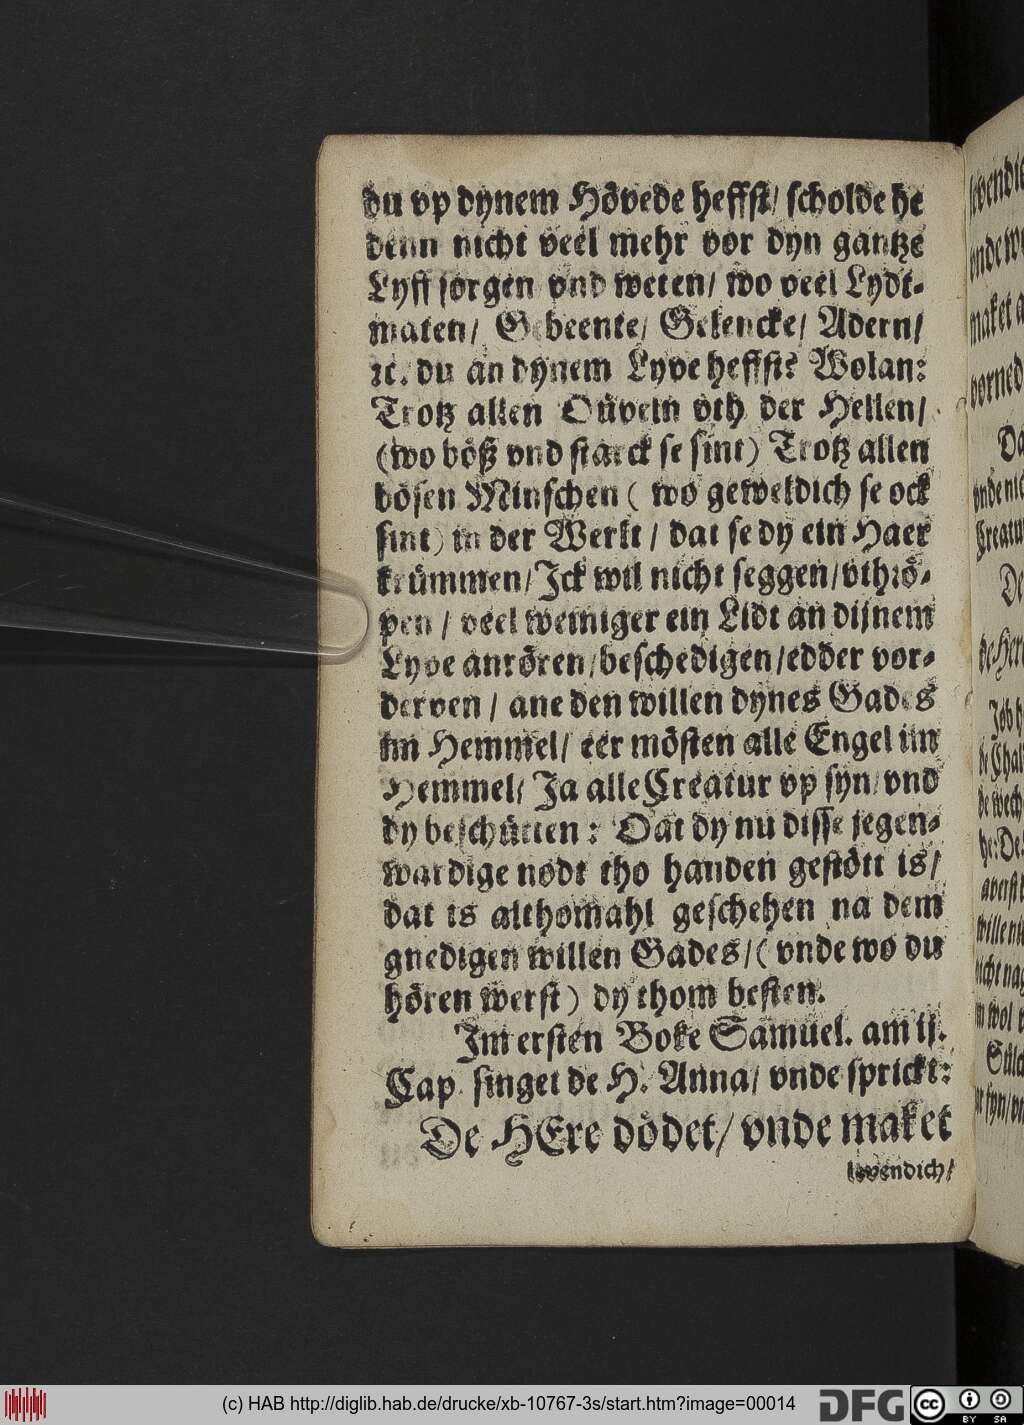 du vp dynem Hövede heffst/ scholde he
denn nicht veel mehr vor dyn gantze
Lyff sorgen vnd weten/ wo veel Lydt-
maten/ Gebeente/ Gelencke/ Adern/
ꝛc. du an dynem Lyve heffst? Wolan:
Trotz allen Düveln vth der Hellen/
(wo böß vnd starck se sint) Trotz allen
bösen Minschen ( wo geweldich se ock
sint) in der Werlt / dat se dy ein Haer
krümmen/ Jck wil nicht seggen/ vthrö-
pen / veel weiniger ein Lidt an dijnem
Lyve anrören/ beschedigen/ edder vor-
derven / ane den willen dynes Gades
im Hemmel/ eer mösten alle Engel im
Hemmel/ Ja alle Creatur vp syn/ vnd
dy beschütten : Dat dy nu disse jegen-
wardige nodt tho handen gestött is/
dat is althomahl geschehen na dem
gnedigen willen Gades/ ( vnde wo du
hören werst) dy thom besten.
Jm ersten Boke Samuel. am ij.
Cap. singet de H. Anna/ vnde sprickt:
De HEre dödet/ vnde maket
levendich/
levendic
vnde we
maket a
vorned
Da
vnde nic
Creatu
De
de Her
Job h
de Chal
de wech
he: De
averst
wille ni
nicht na
m wol
Sülc
r syn/ v
(c) HAB http://diglib.hab.de/drucke/xb-10767-3s/start.htm?image=00014
DFG
cc
BY SA